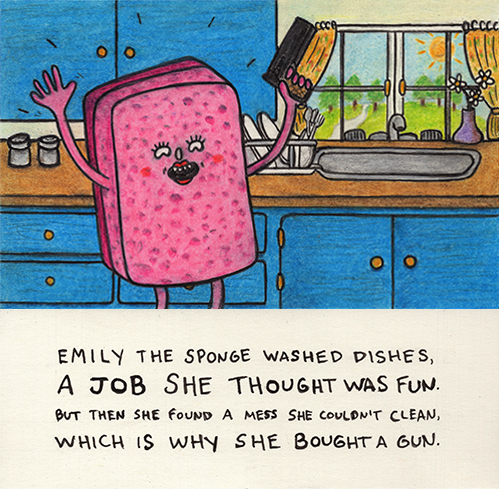 EMILY THE SPONGE WASHED DISHES,
A JOB SHE THOUGHT WAS FUN.
BUT THEN SHE FOUND A MESS SHE COULDN'T CLEAN,
WHICH IS WHY SHE BOUGHT A GUN.